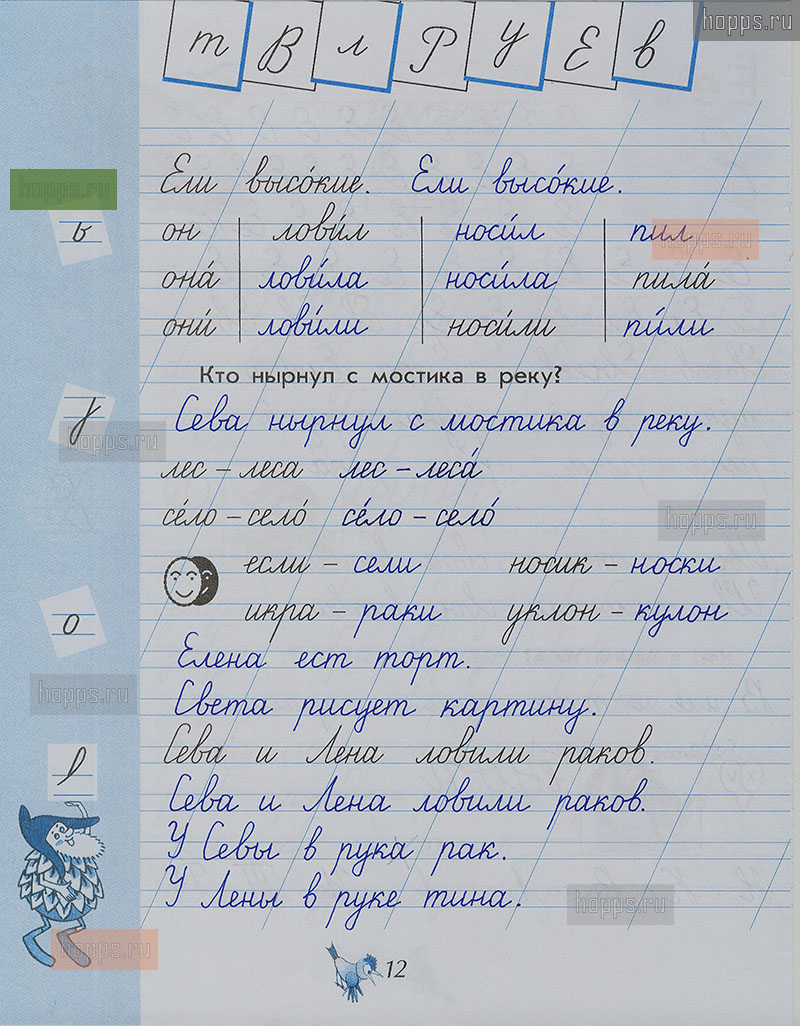 т В л Р У Е в
hopps.ru
Ели высо́кие. Ели высо́кие.
hopps.ru
он лови́л носи́л пил
hopps.ru
она́ лови́ла носи́ла пила́
они́ лови́ли носи́ли пи́ли
Кто нырнул с мостика в реку?
Сева нырнул с мостика в реку.
hopps.ru
лес – леса лес – леса́
се́ло – село́ се́ло – село́
hopps.ru
если – сели носик – носки
икра – раки уклон – кулон
о
Елена ест торт.
hopps.ru
Света рисует картину.
Сева и Лена ловили раков.
Сева и Лена ловили раков.
У Севы в рука рак.
У Лены в руке тина.
hopps.ru
hopps.ru
12